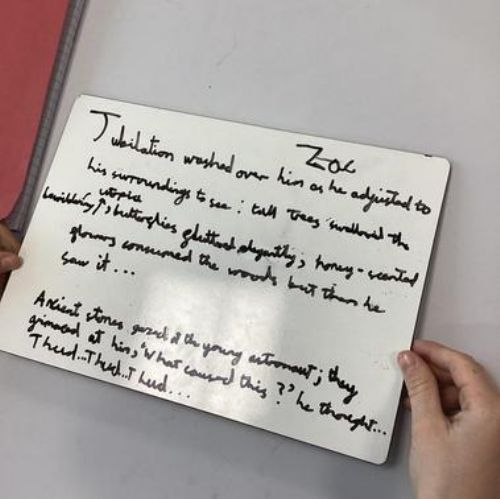 Zac
Jubilation washed over him as he adjusted to
his surroundings to see: tall trees swallowed the
utopia
, butterflies glutted elegantly; honey-scented
flowers consumed the woods but then he
saw it...
Ancient stones gazed at the young astronaut; they
grimaced at him, "What caused this?" he thought...
Thud...Thud...Thud...